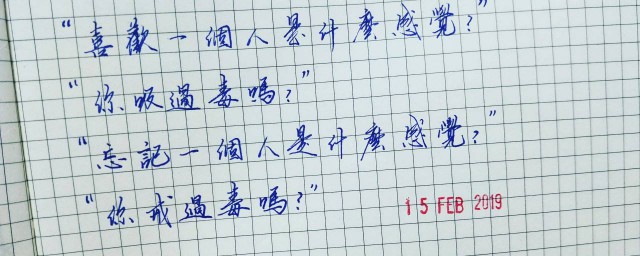 “喜歡一個人是什麼感覺？”
“你吸過毒嗎？”
“忘記一個人是什麼感覺？”
“你戒過毒嗎？”
15 FEB 2019